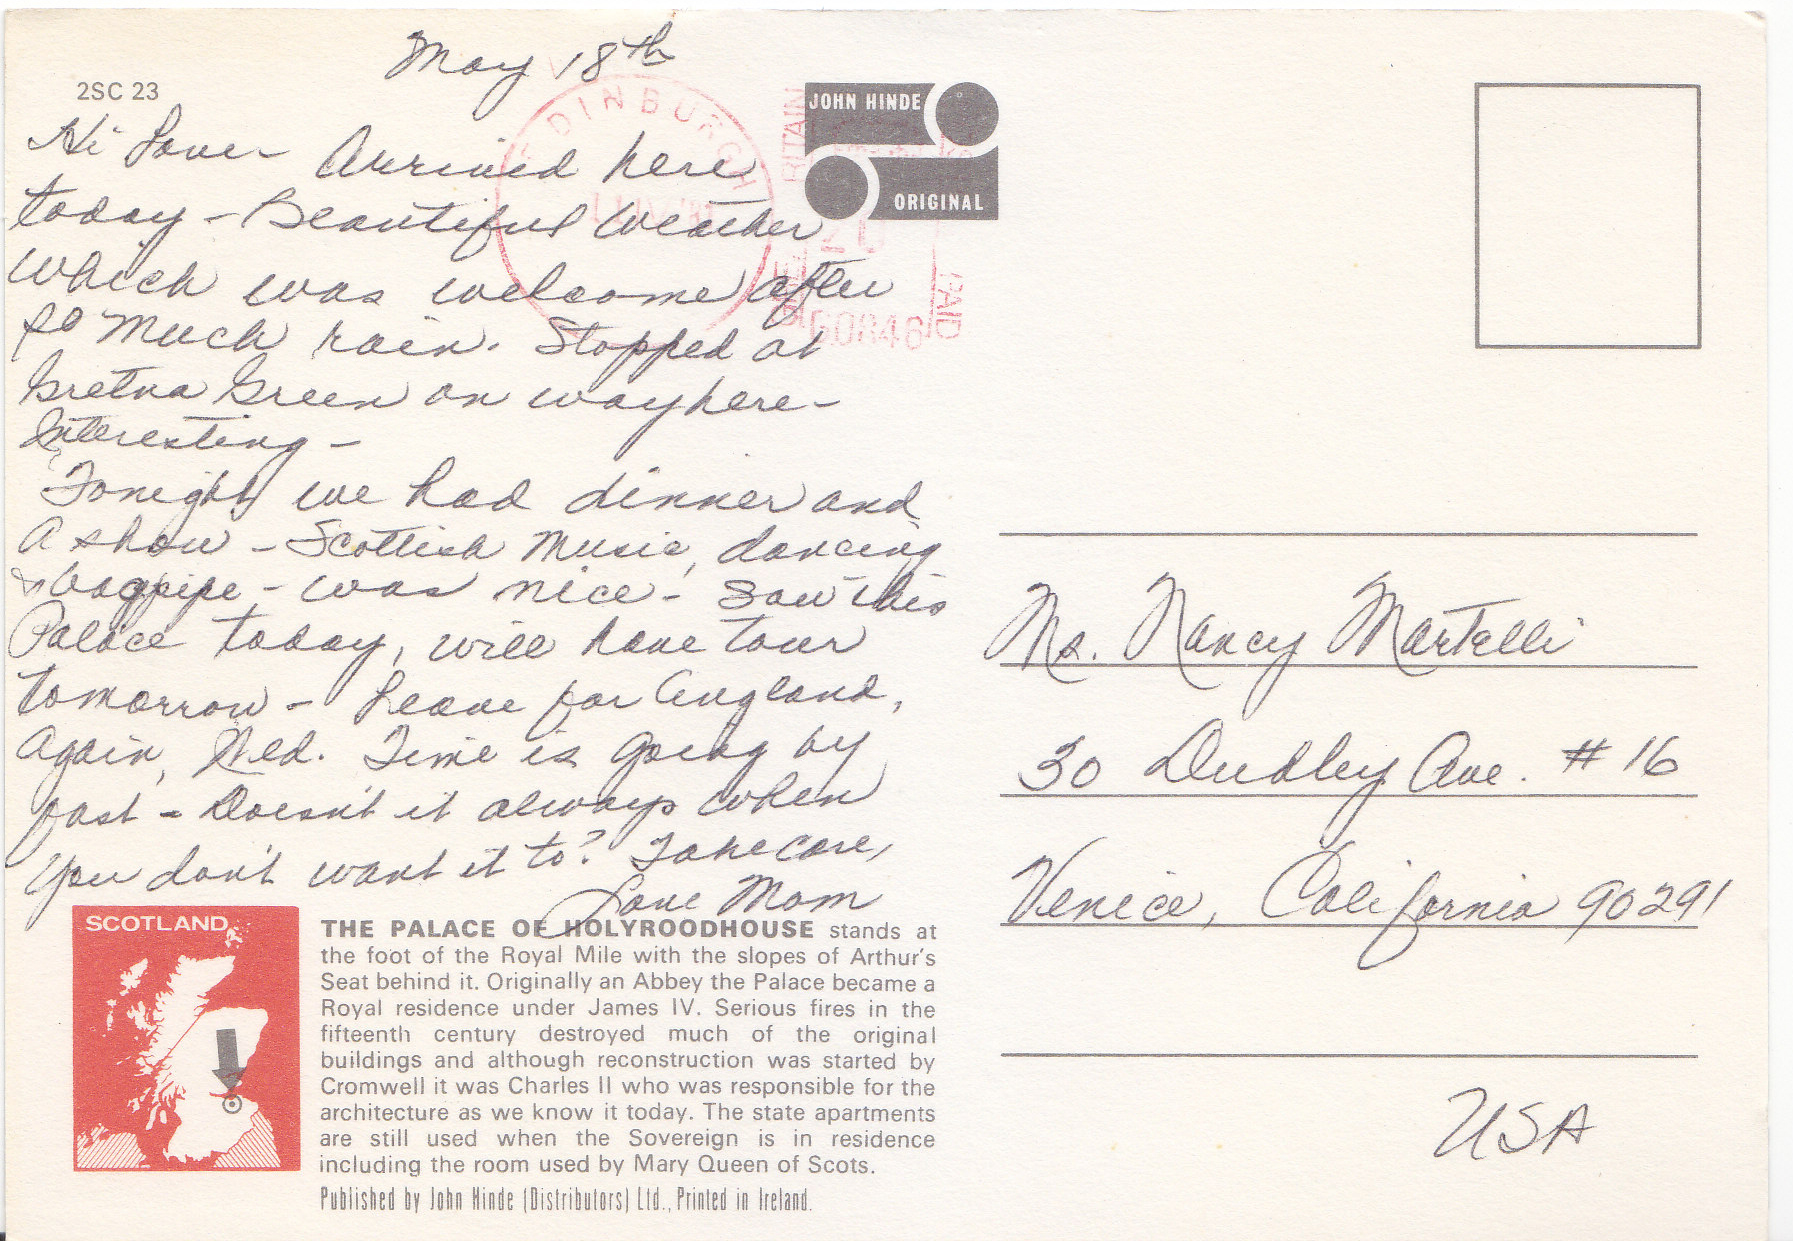 May 18th
2SC 23
Hi Love - Arrived here
today - Beautiful Weather
which was welcome after
so much rain. Stopped at
Gretna Green on way here -
Interesting -
Tonight we had dinner and
A show - Scottish Music, dancing
& bagpipe - was nice - Saw this
Palace today, will have tour
tomorrow - Leave for England,
again, Wed. Time is going by
fast - Doesn't it always when
you don't want it to? Take care,
Love Mom
EDINBURGH
RITAIN
PAID
JOHN HINDE
ORIGINAL
Ms. Nancy Martelli
30 Dudley Ave. #16
Venice, California 90291
USA
SCOTLAND
THE PALACE OF HOLYROODHOUSE stands at
the foot of the Royal Mile with the slopes of Arthur's
Seat behind it. Originally an Abbey the Palace became a
Royal residence under James IV. Serious fires in the
fifteenth century destroyed much of the original
buildings and although reconstruction was started by
Cromwell it was Charles II who was responsible for the
architecture as we know it today. The state apartments
are still used when the Sovereign is in residence
including the room used by Mary Queen of Scots.
Published by John Hinde (Distributors) Ltd., Printed in Ireland.